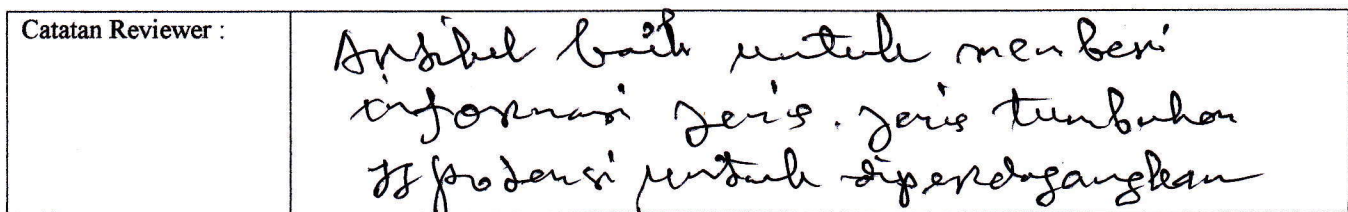 Catatan Reviewer :
Artikel baik untuk memberi
informasi jenis-jenis tumbuhan
yg potensi untuk diperdagangkan